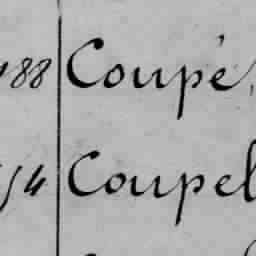 188 Coupé,
54 Coupel